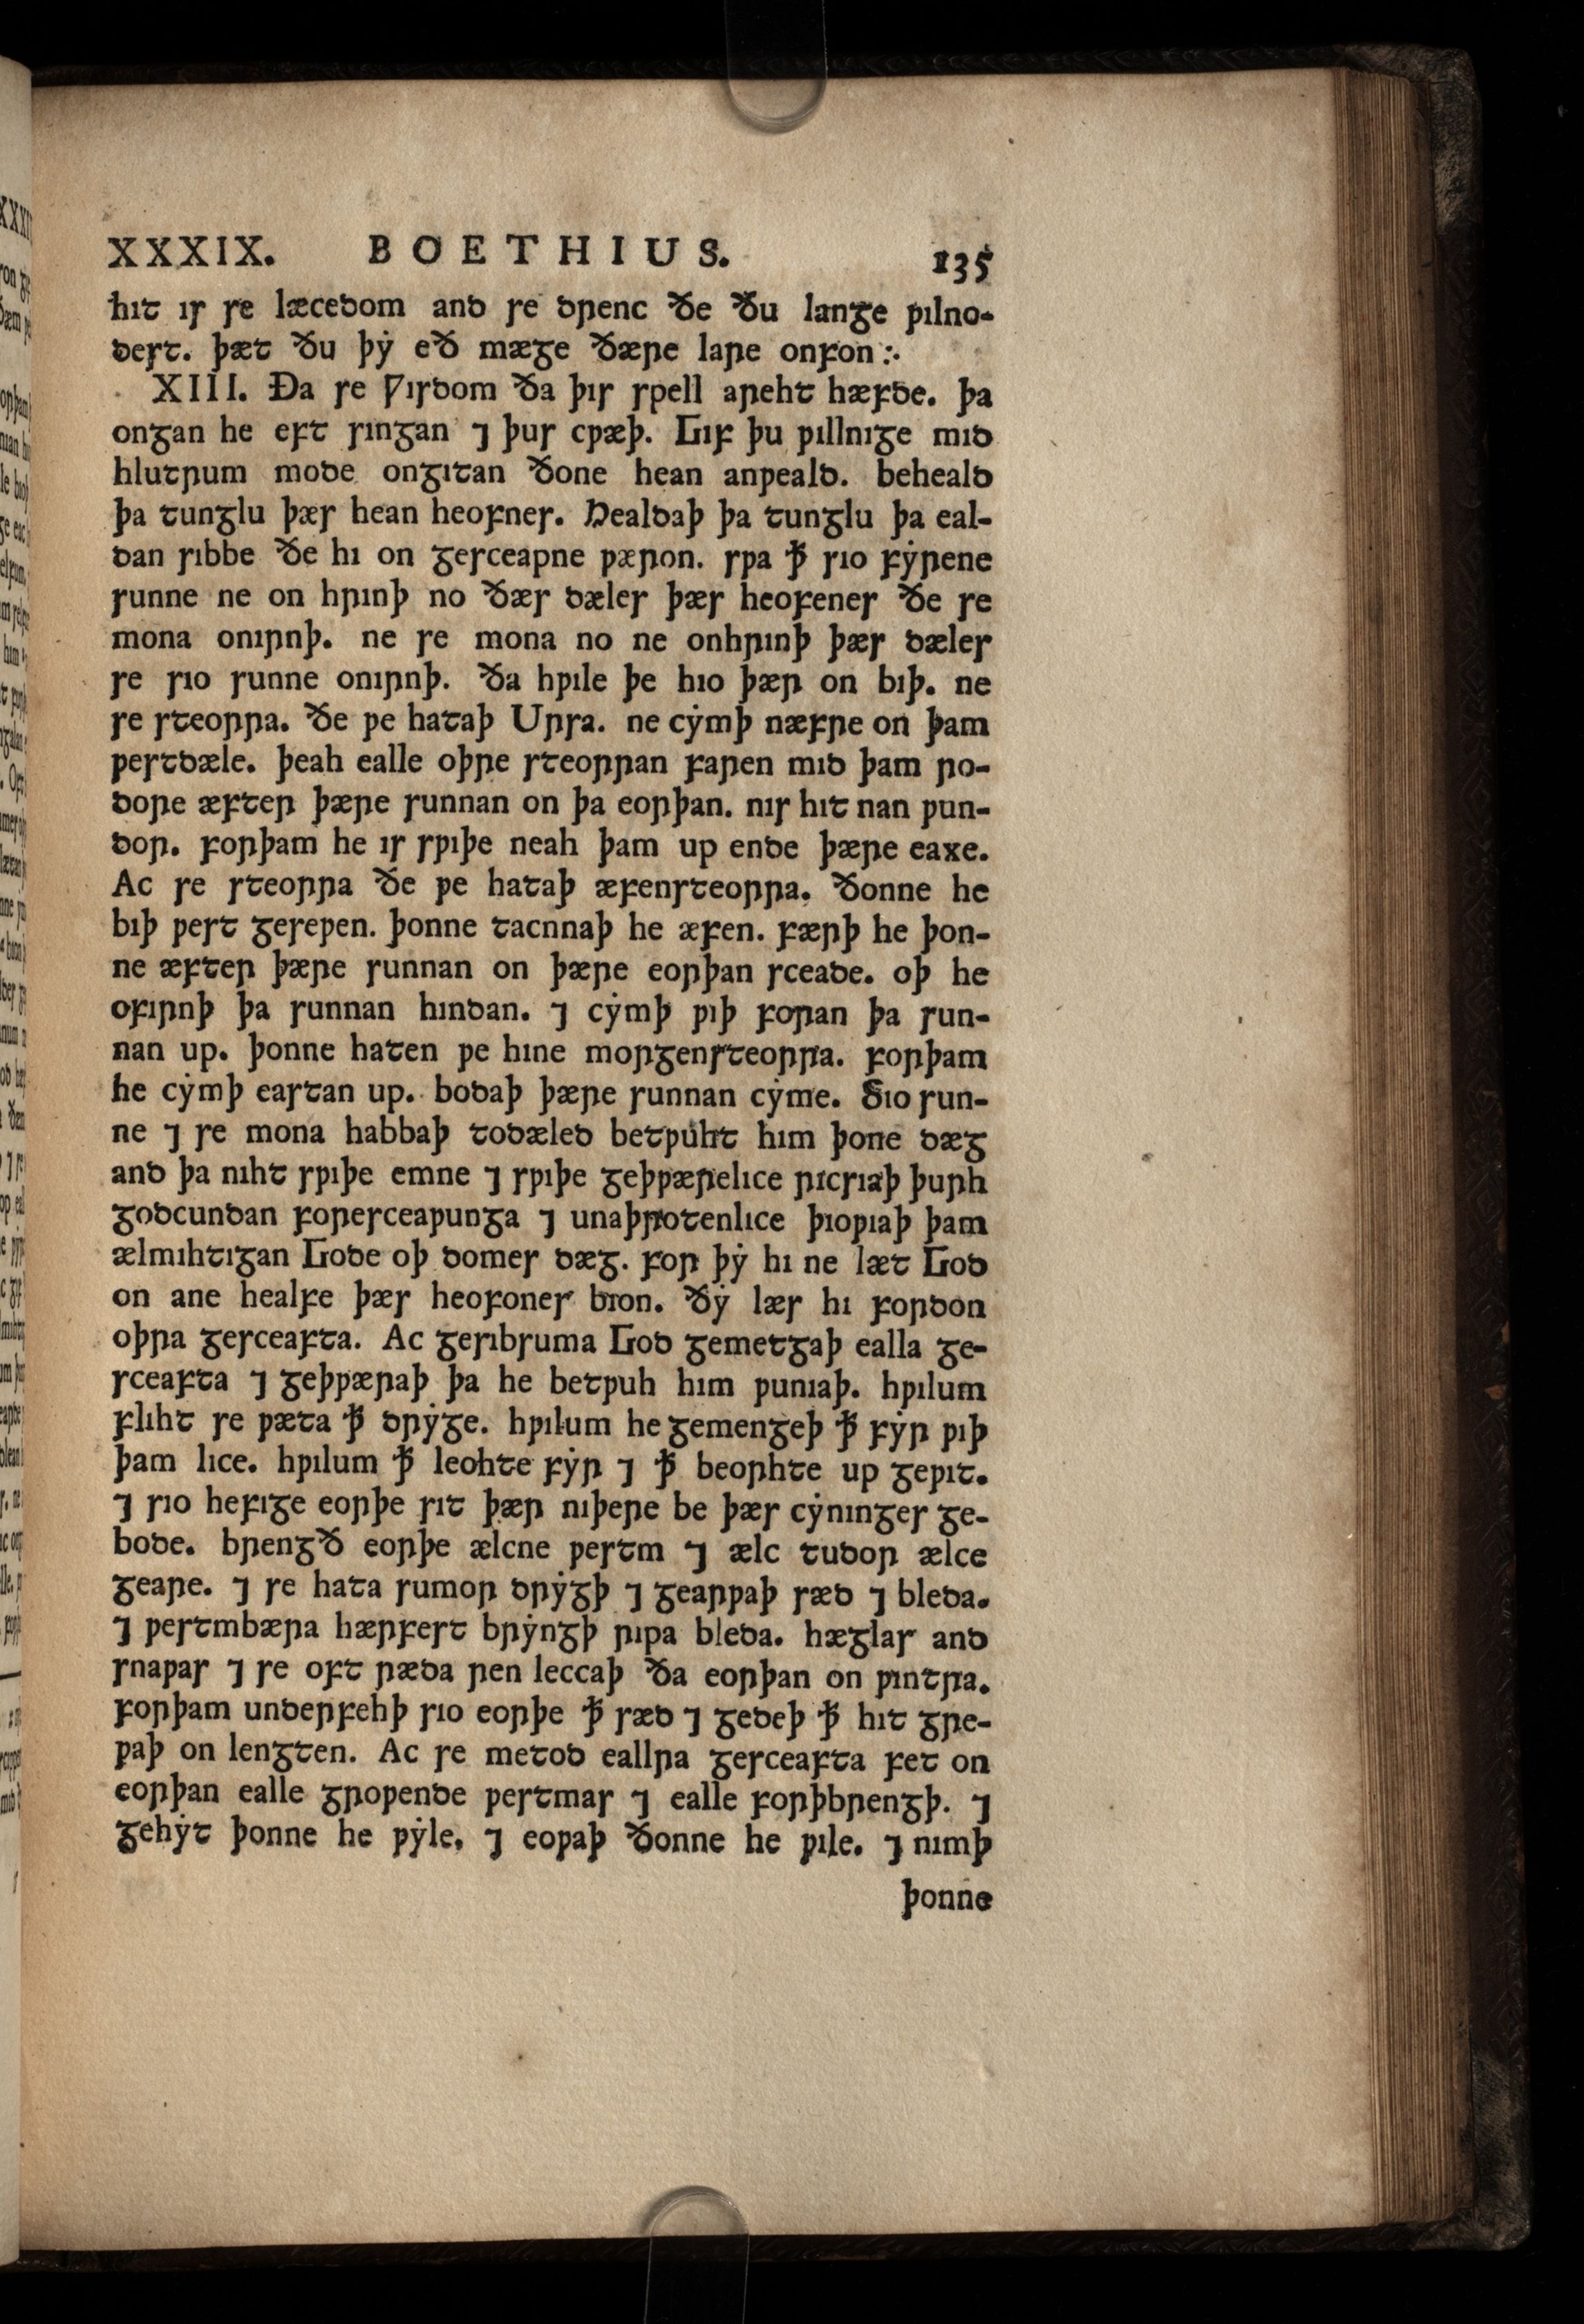 XXXIX. BOETHIUS. 135
hit is se læcedom and se drenc ðe ðu lange ƿilno-
dest. þæt ðu þẏ eð mæge ðære lare onfon :.
XIII. Ða se Ƿisdom ða þis spell areht hæfde. þa
ongan he eft singan ⁊ þus cƿæþ. Gif þu ƿillnige mid
hlutrum mode ongitan ðone hean anƿeald. beheald
þa tunglu þæs hean heofnes. Healdaþ þa tunglu þa eal-
dan sibbe ðe hi on gesceapne ƿæron. sƿa ꝥ sio fẏrene
sunne ne on hrinþ no ðæs dæles þæs heofenes ðe se
mona onirnþ. ne se mona no ne onhrinþ þæs dæles
se sio sunne onirnþ. ða hƿile þe hio þær on biþ. ne
se steorra. ðe ƿe hataþ Ursa. ne cẏmþ næfre on þam
ƿestdæle. þeah ealle oþre steorran faren mid þam ro-
dore æfter þære sunnan on þa eorþan. nis hit nan ƿun-
dor. forþam he is sƿiþe neah þam up ende þære eaxe.
Ac se steorra ðe ƿe hataþ æfensteorra. ðonne he
biþ ƿest geseƿen. þonne tacnnaþ he æfen. færþ he þon-
ne æfter þære sunnan on þære eorþan sceade. oþ he
ofirnþ þa sunnan hindan. ⁊ cẏmþ ƿiþ foran þa sun-
nan up. þonne haten ƿe hine morgensteorra. forþam
he cẏmþ eastan up. bodaþ þære sunnan cẏme. Sio sun-
ne ⁊ se mona habbaþ todæled betƿuht him þone dæg
and þa niht sƿiþe emne ⁊ sƿiþe geþƿærelice ricsiaþ þurh
godcundan foresceaƿunga ⁊ unaþrotenlice þioƿiaþ þam
ælmihtigan Gode oþ domes dæg. for þẏ hi ne læt God
on ane healfe þæs heofones bion. ðẏ læs hi fordon
oþra gesceafta. Ac gesibsuma God gemetgaþ ealla ge-
sceafta ⁊ geþƿæraþ þa he betƿuh him ƿuniaþ. hƿilum
fliht se ƿæta ꝥ drẏge. hƿilum he gemengeþ ꝥ fẏr ƿiþ
þam lice. hƿilum ꝥ leohte fẏr ⁊ ꝥ beorhte up geƿit.
⁊ sio hefige eorþe sit þær niþere be þæs cẏninges ge-
bode. brengð eorþe ælcne ƿestm ⁊ ælc tudor ælce
geare. ⁊ se hata sumor drẏgþ ⁊ gearƿaþ sæd ⁊ bleda.
⁊ ƿestmbæra hærfest brẏngþ ripa bleda. hæglas and
snaƿas ⁊ se oft ræda ren leccaþ ða eorþan on ƿintra.
forþam underfehþ sio eorþe ꝥ sæd ⁊ gedeþ ꝥ hit gre-
ƿaþ on lengten. Ac se metod eallra gesceafta fet on
eorþan ealle groƿende ƿestmas ⁊ ealle forþbrengþ. ⁊
gehẏt þonne he ƿẏle, ⁊ eoƿaþ ðonne he ƿile. ⁊ nimþ
þonne